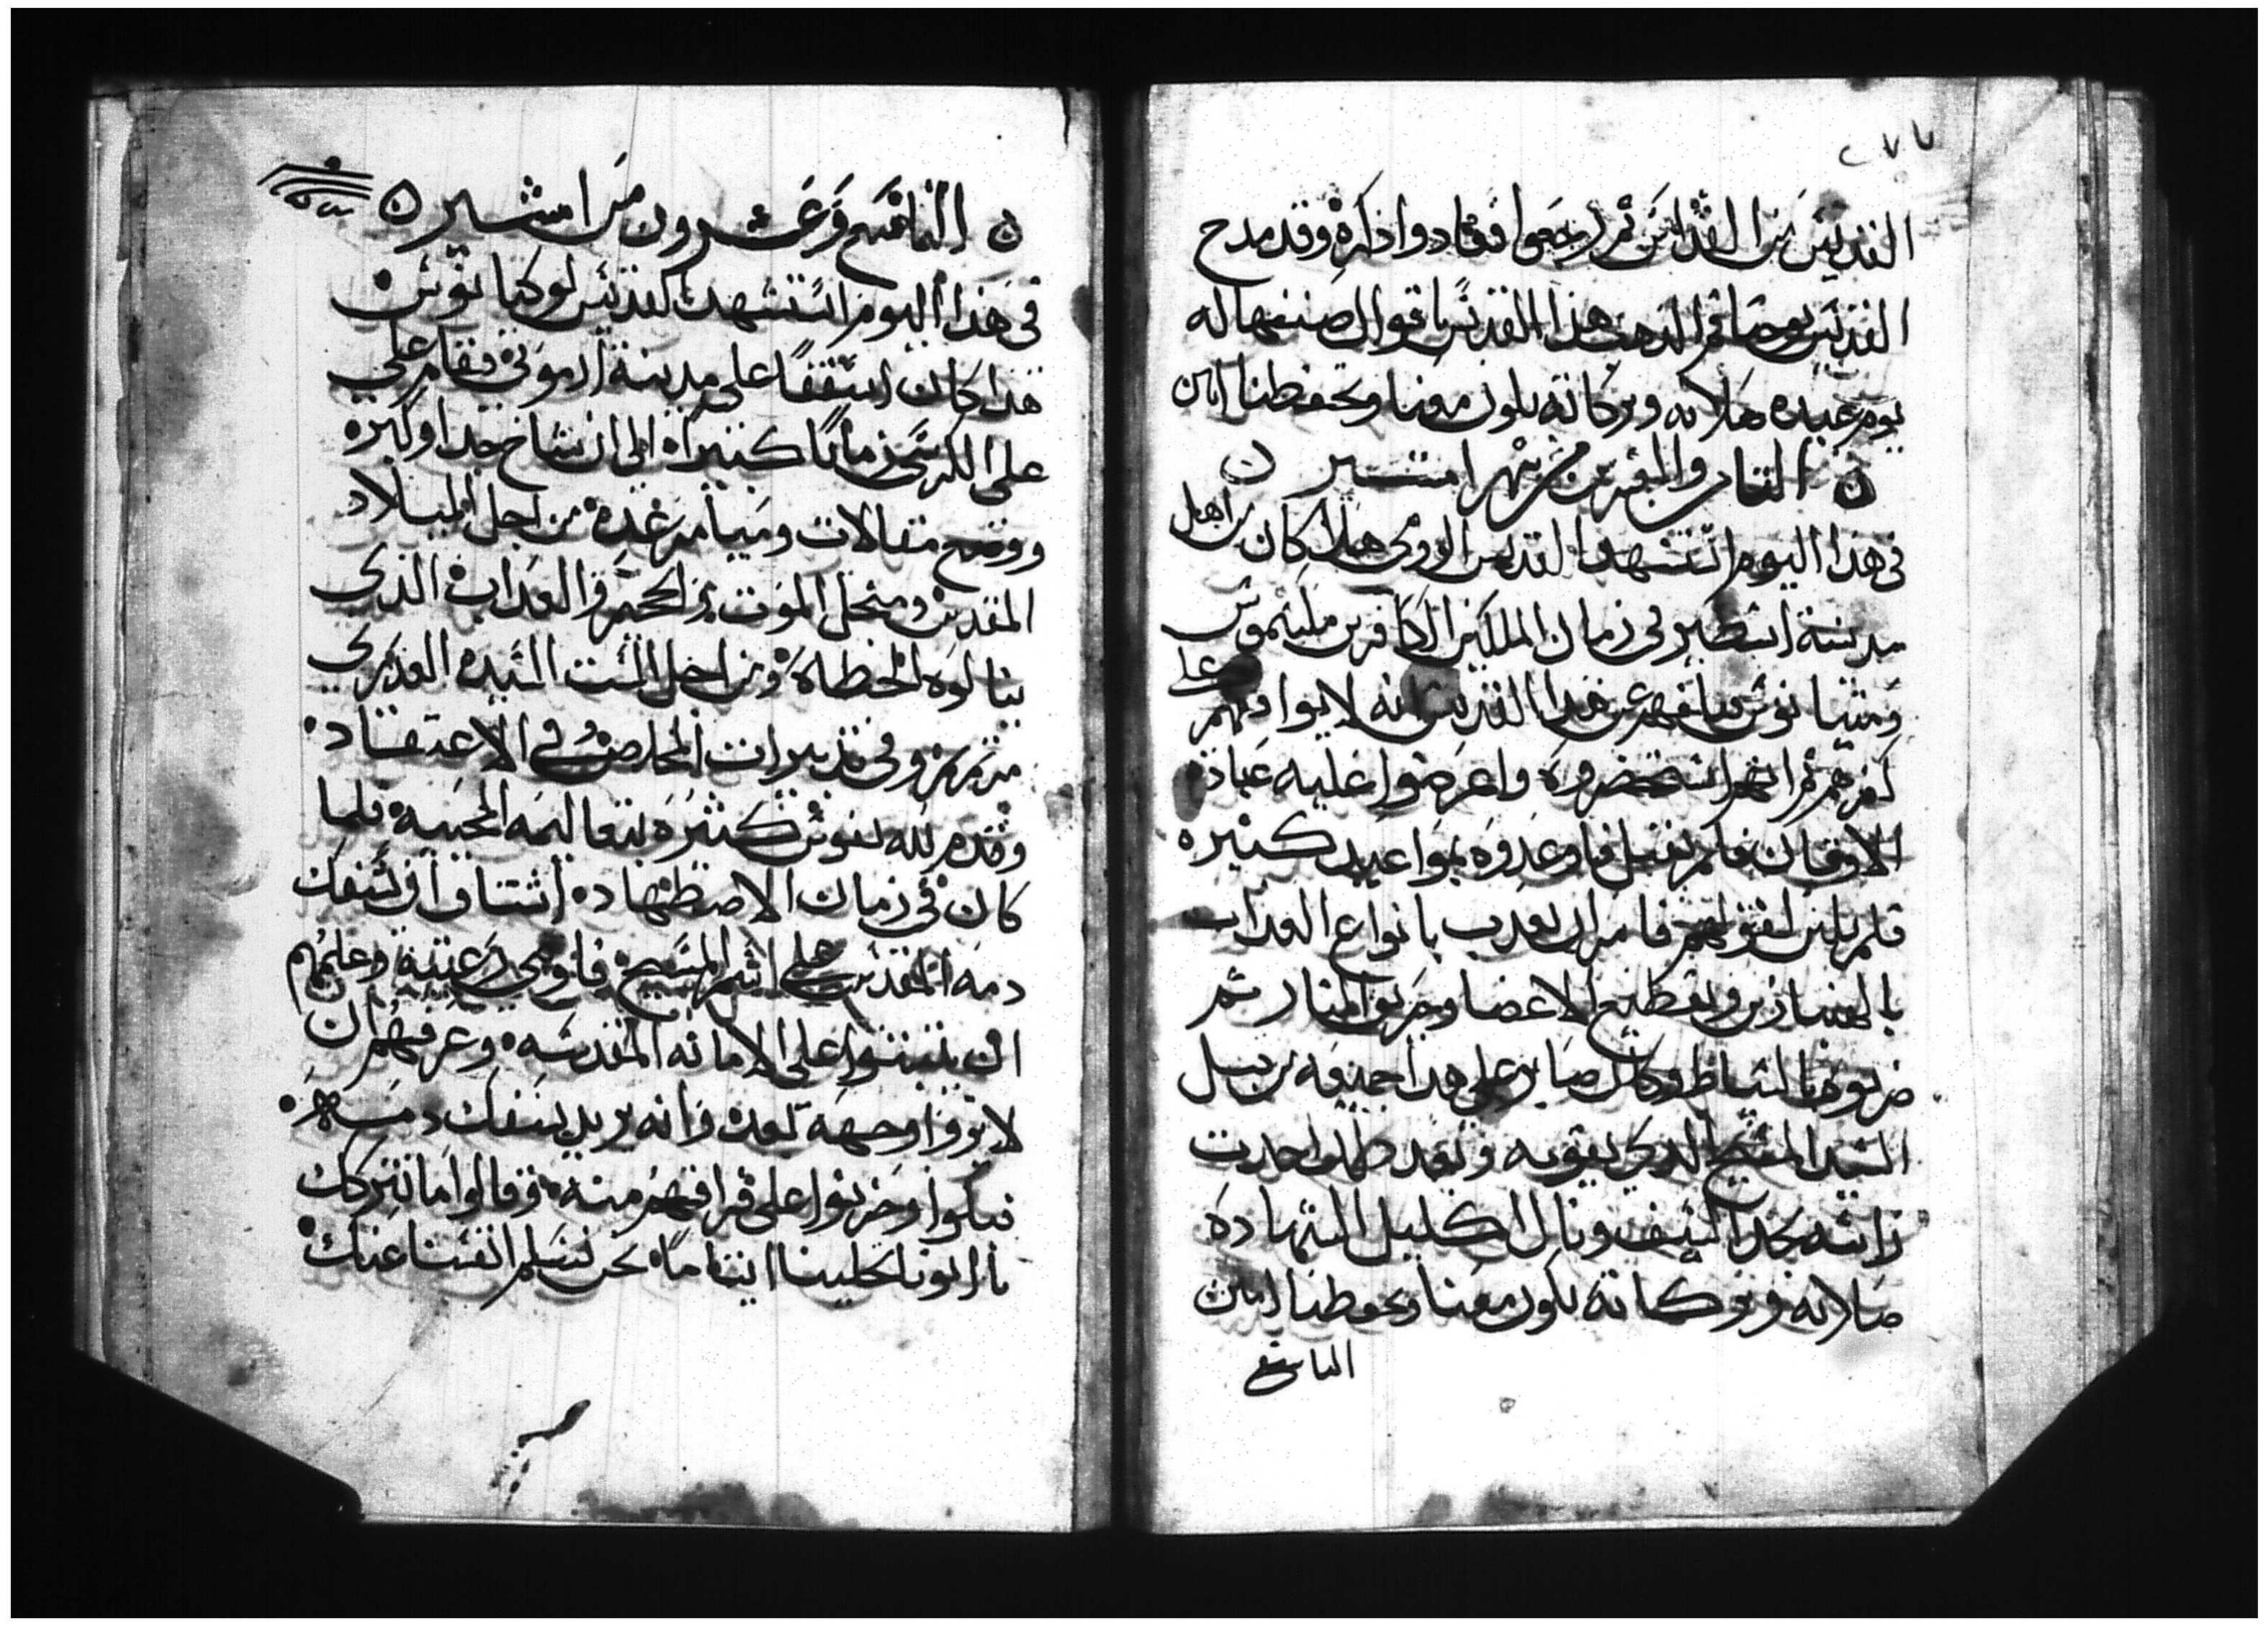 ٢٧٧
القديس من القداس ثم رجعوا فعادوا ذكره وقد مدح
القديس يوحنا فم الدهب هذا القديس باقوال صنفها له
يوم عيده صلاته وبركاته تكون معنا وتحفظنا امين
التامن والعشرين من شهر امشير
فى هذا اليوم استشهد القديس تاودرى هذا كان من اهل
مدينة اسطير فى زمان الملكين الكافرين مكسيموس
فبلغهم عن هذا القديس انه لا يوافقهم على
كفرهم ثم انهم استحضروه واعرضوا عليه عبادة
الاوثان فلم يفعل فاوعدوه بمواعيد كثيره
فلم يلين لقولهم فامر ان يعدب بانواع العداب
بالهنبازين وبقطيع الاعضا وحريق النار ثم
ضربوه بالسياط وكان صابر على هدا جميعه من قبل
السيد المسيح الدى يقويه وبعد هذا اخدت
راسه بحد السيف ونال اكليل الشهاده
صلاته وبركاته تكون معنا وتحفظنا امين
التاسع
التاسع وعشرون من امشير
فى هذا اليوم استشهد القديس بوليكاربوس
هذا كان اسقفا على مدينة ازمرنى فقام على
على الكرسى زمانا كثيرا الى ان شاخ جدا وكبر
ووضع مقالات وميامر عده من اجل الميلاد
المقدس ومنجل الموت والجحيم والعداب الذى
ينالوه الخطاه ومن اجل الست السيده العدرى
مرتمريم وفى تدبيرات المخلص وفى الاعتقاد
وقدم لله نفوس كثيره بتعاليمه المحييه فلما
كان فى زمان الاضطهاد اشتاق ان يسفك
دمه المقدس على اسم المسيح فاوصى رعيته وعلمهم
ان يثبتوا على الامانه المقدسه وعرفهم ان
لا يروا وجهه بعد وانه يريد يسفك دمه
فبكوا وحزنوا على فراقهم منه وقالوا ما نتركك
يا ابونا تخلينا ايتاما نحن نسلم انفسنا عنك